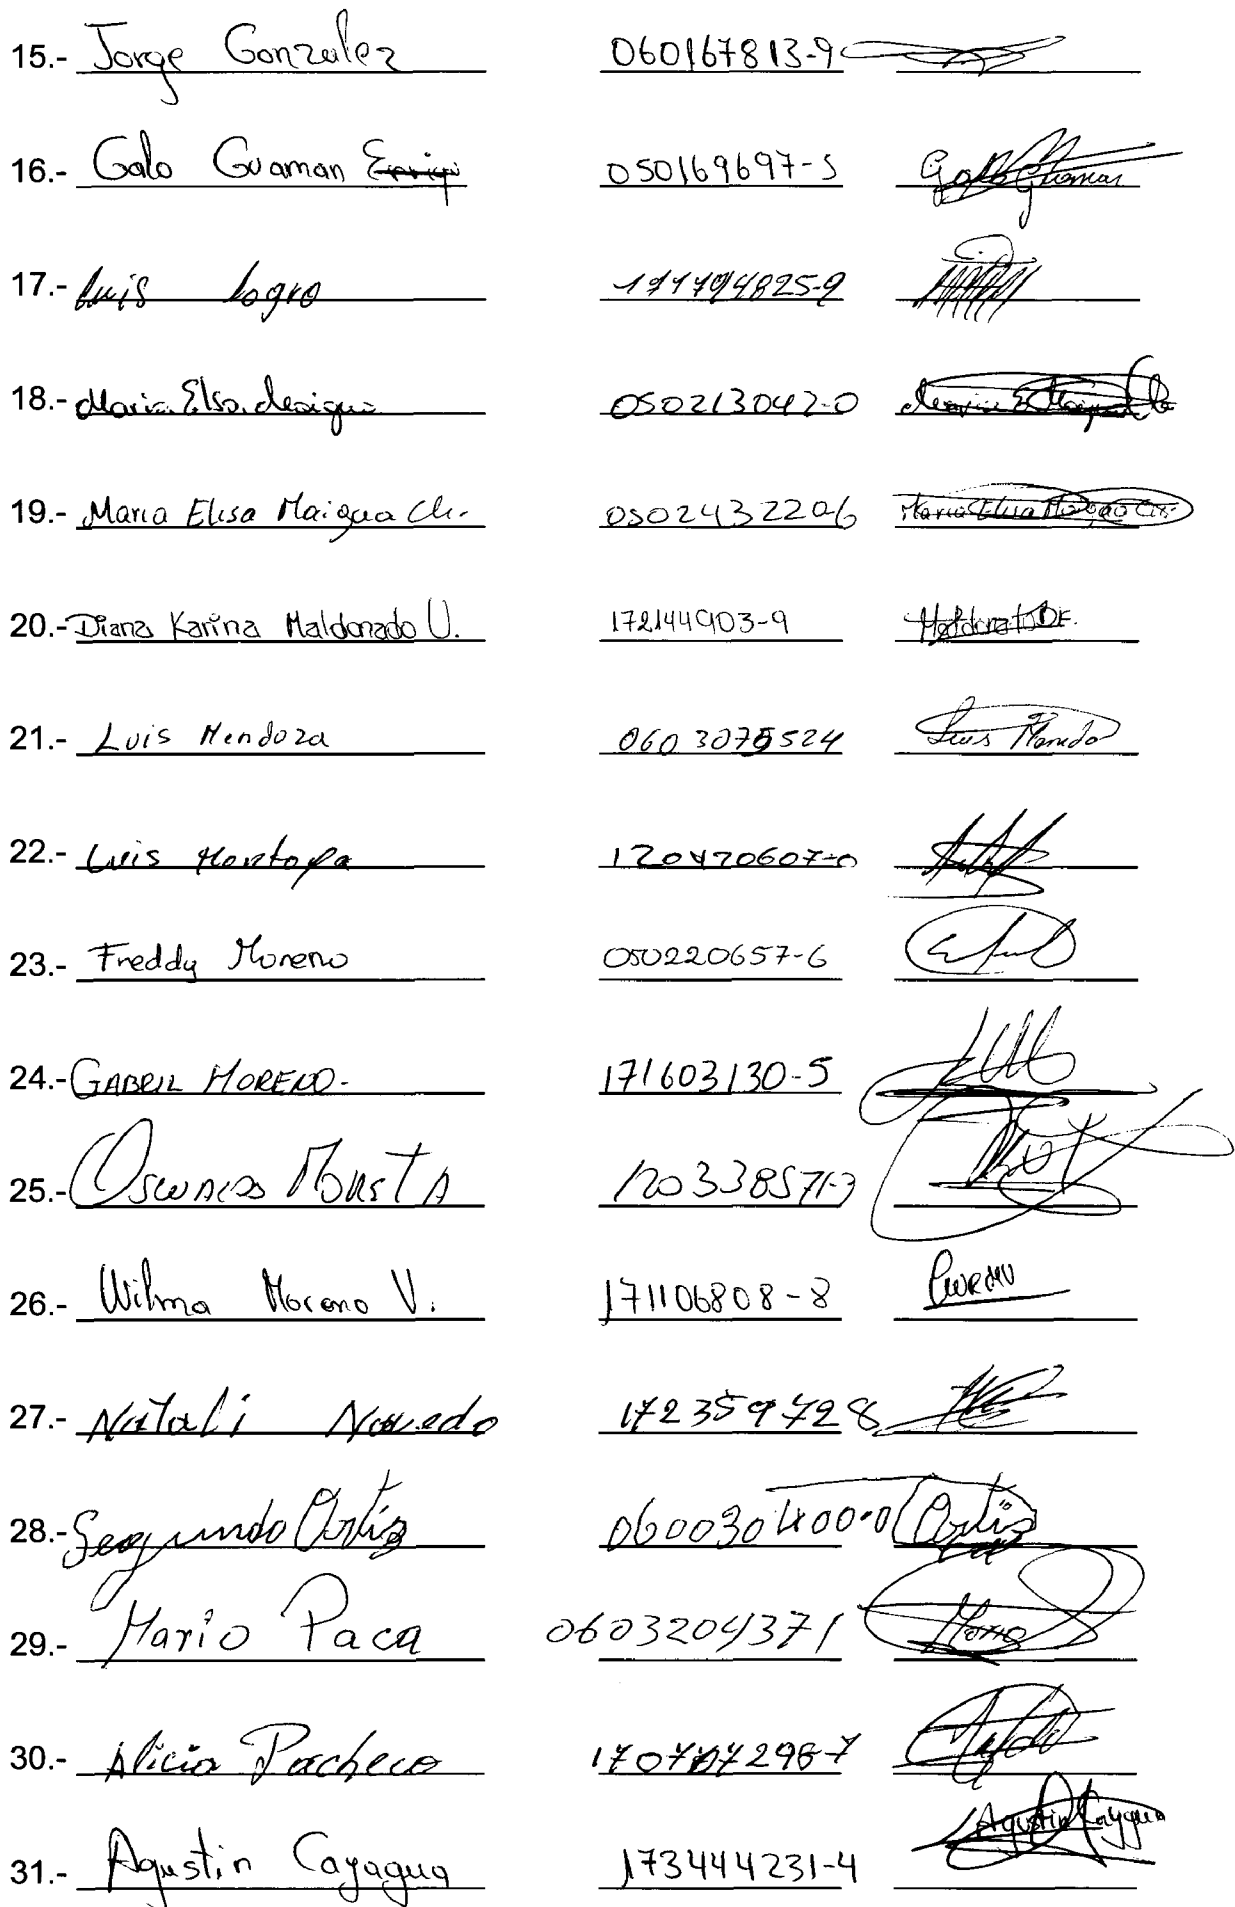 15.- Jorge Gonzalez 060167813-9
16.- Galo Guaman 050169697-5 Galo Guaman
17.- Luis Logro 171794825-9
18.- Maria Elsa Maigua 050213042-0
19.- Maria Elisa Maigua Ch. 0502432206 Maria Elisa Maigua Ch.
20.- Diana Karina Maldonado U. 172144903-9
21.- Luis Mendoza 0603075524 Luis
22.- Luis Montoya 120470607-0
23.- Freddy Moreno 050220657-6
24.- GABRIL MORENO. 171603130-5
25.- 120338571-3
26.- Wilma Moreno V. 171106808-8
27.- Natali 1723597728
28.- Segundo Ortiz 060030400-0 Ortiz
29.- Mario Paca 0603204371
30.- Alicia Pacheco
31.- Agustin Cayagua 173444231-4 Agustin Cayagua